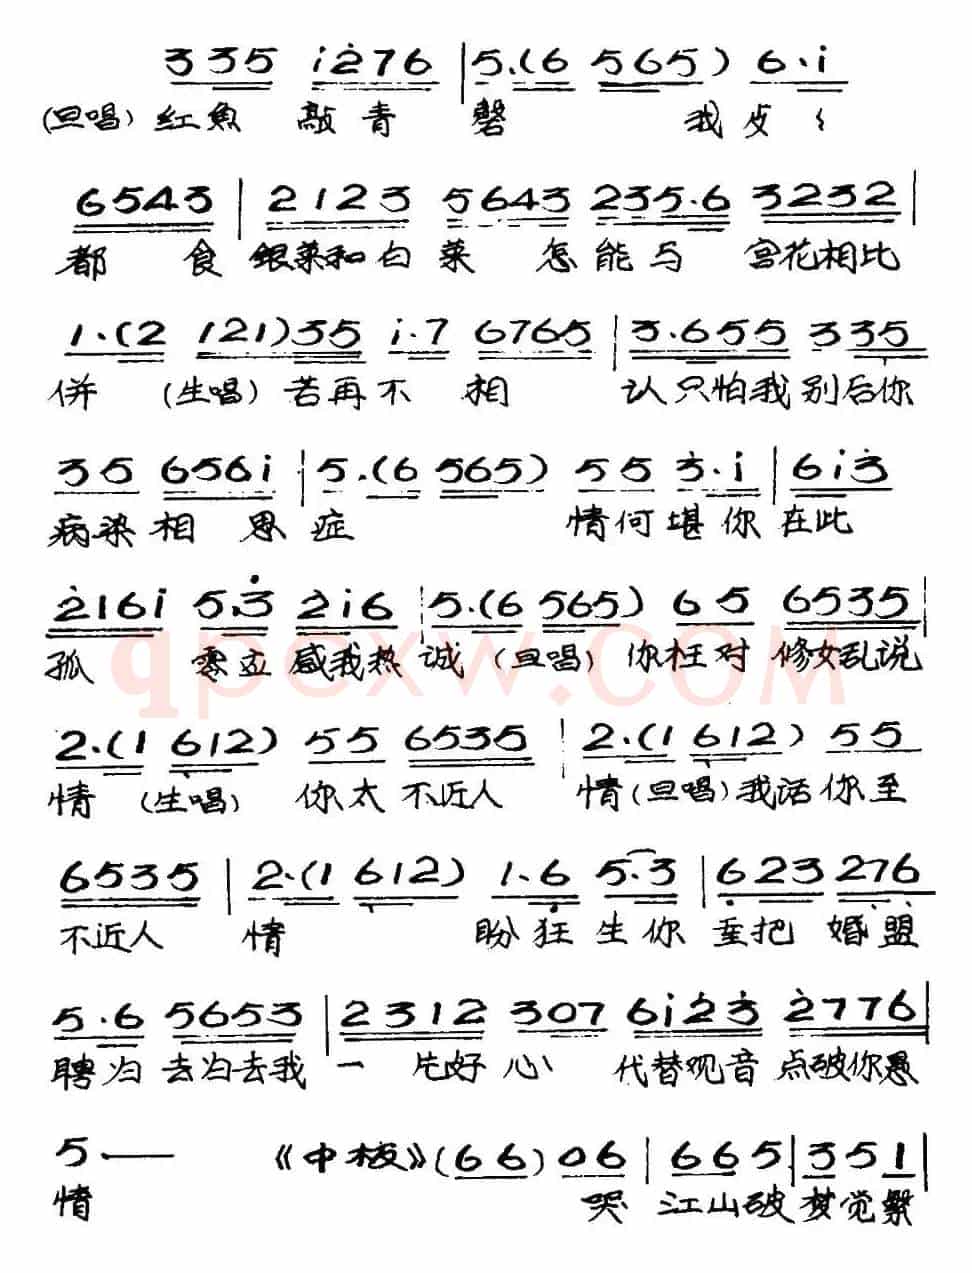 3 3 5 i 2 7 6 | 5.(6 5 6 5) 6.i
(旦唱) 红魚 敲青 磬 我
6 5 4 3 | 2 1 2 3 5 6 4 3 2 3 5.6 3 2 3 2 |
都 食 銀菜和白菜 怎能与 宫花相比
1.(2 1 2 1) 3 5 i.7 6 7 6 5 | 3.6 5 5 3 3 5
併 (生唱) 若再不 相 认只怕我别后你
3 5 6 5 6 i | 5.(6 5 6 5) 5 5 3.i | 6 i 3
病染相 思 症 情何堪你在此
2 1 6 i 5.3 2 i 6 | 5.(6 5 6 5) 6 5 6 5 3 5 |
孤 零立感我热 诚 (旦唱) 你枉对 修女乱说
qpcxw.COM
2.(1 6 1 2) 5 5 6 5 3 5 | 2.(1 6 1 2) 5 5
情 (生唱) 你太 不近人 情 (旦唱) 我话你至
6 5 3 5 | 2.(1 6 1 2) 1.6 5.3 | 6 2 3 2 7 6
不近人 情 盼狂 生你 垂把 婚盟
5.6 5 6 5 3 | 2 3 1 2 3 0 7 6 i 2 3 2 7 7 6 |
聘归 去归去我 一 片好 心 代替观音 点破你愚
5 — 《中板》(6 6) 0 6 | 6 6 5 | 3 5 1 |
情 哭 江山破 梦觉繁